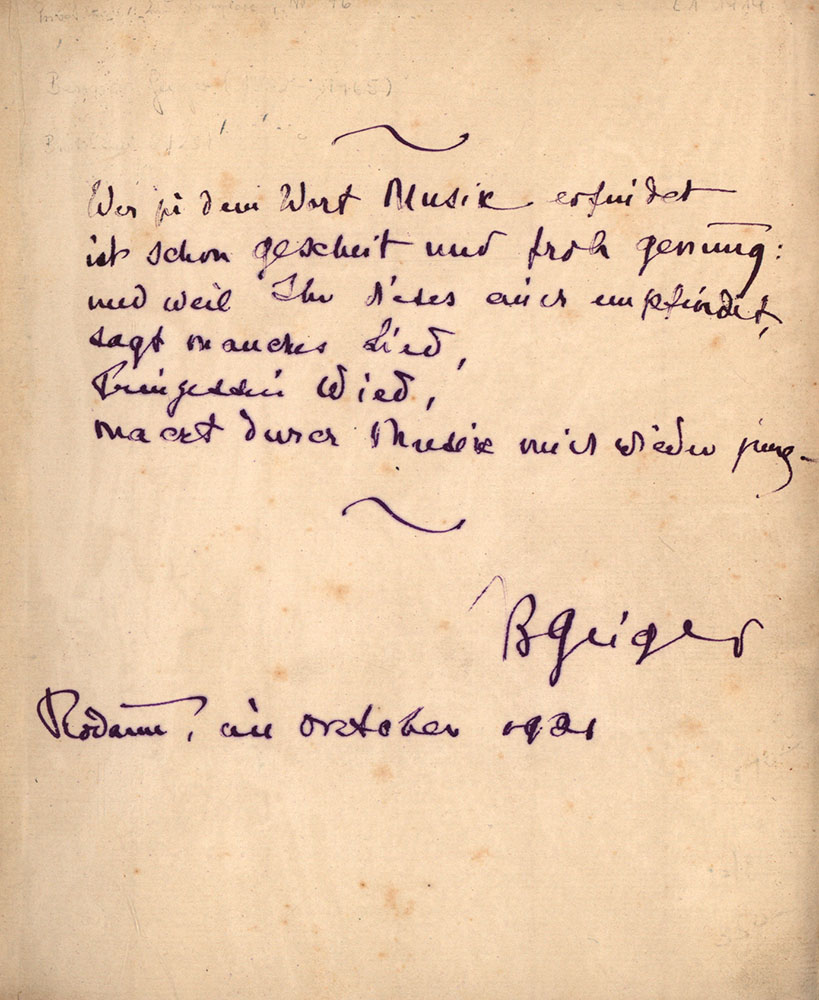 Wer zu dem Wort Musik erfindet
ist schon gescheit und froh genung:
und weil Ihr dieses auch empfindet,
sagt manches Lied,
Prinzessin Wied,
macht durch Musik mich wieder jung–
BGeiger
Rodaun, im October 1921